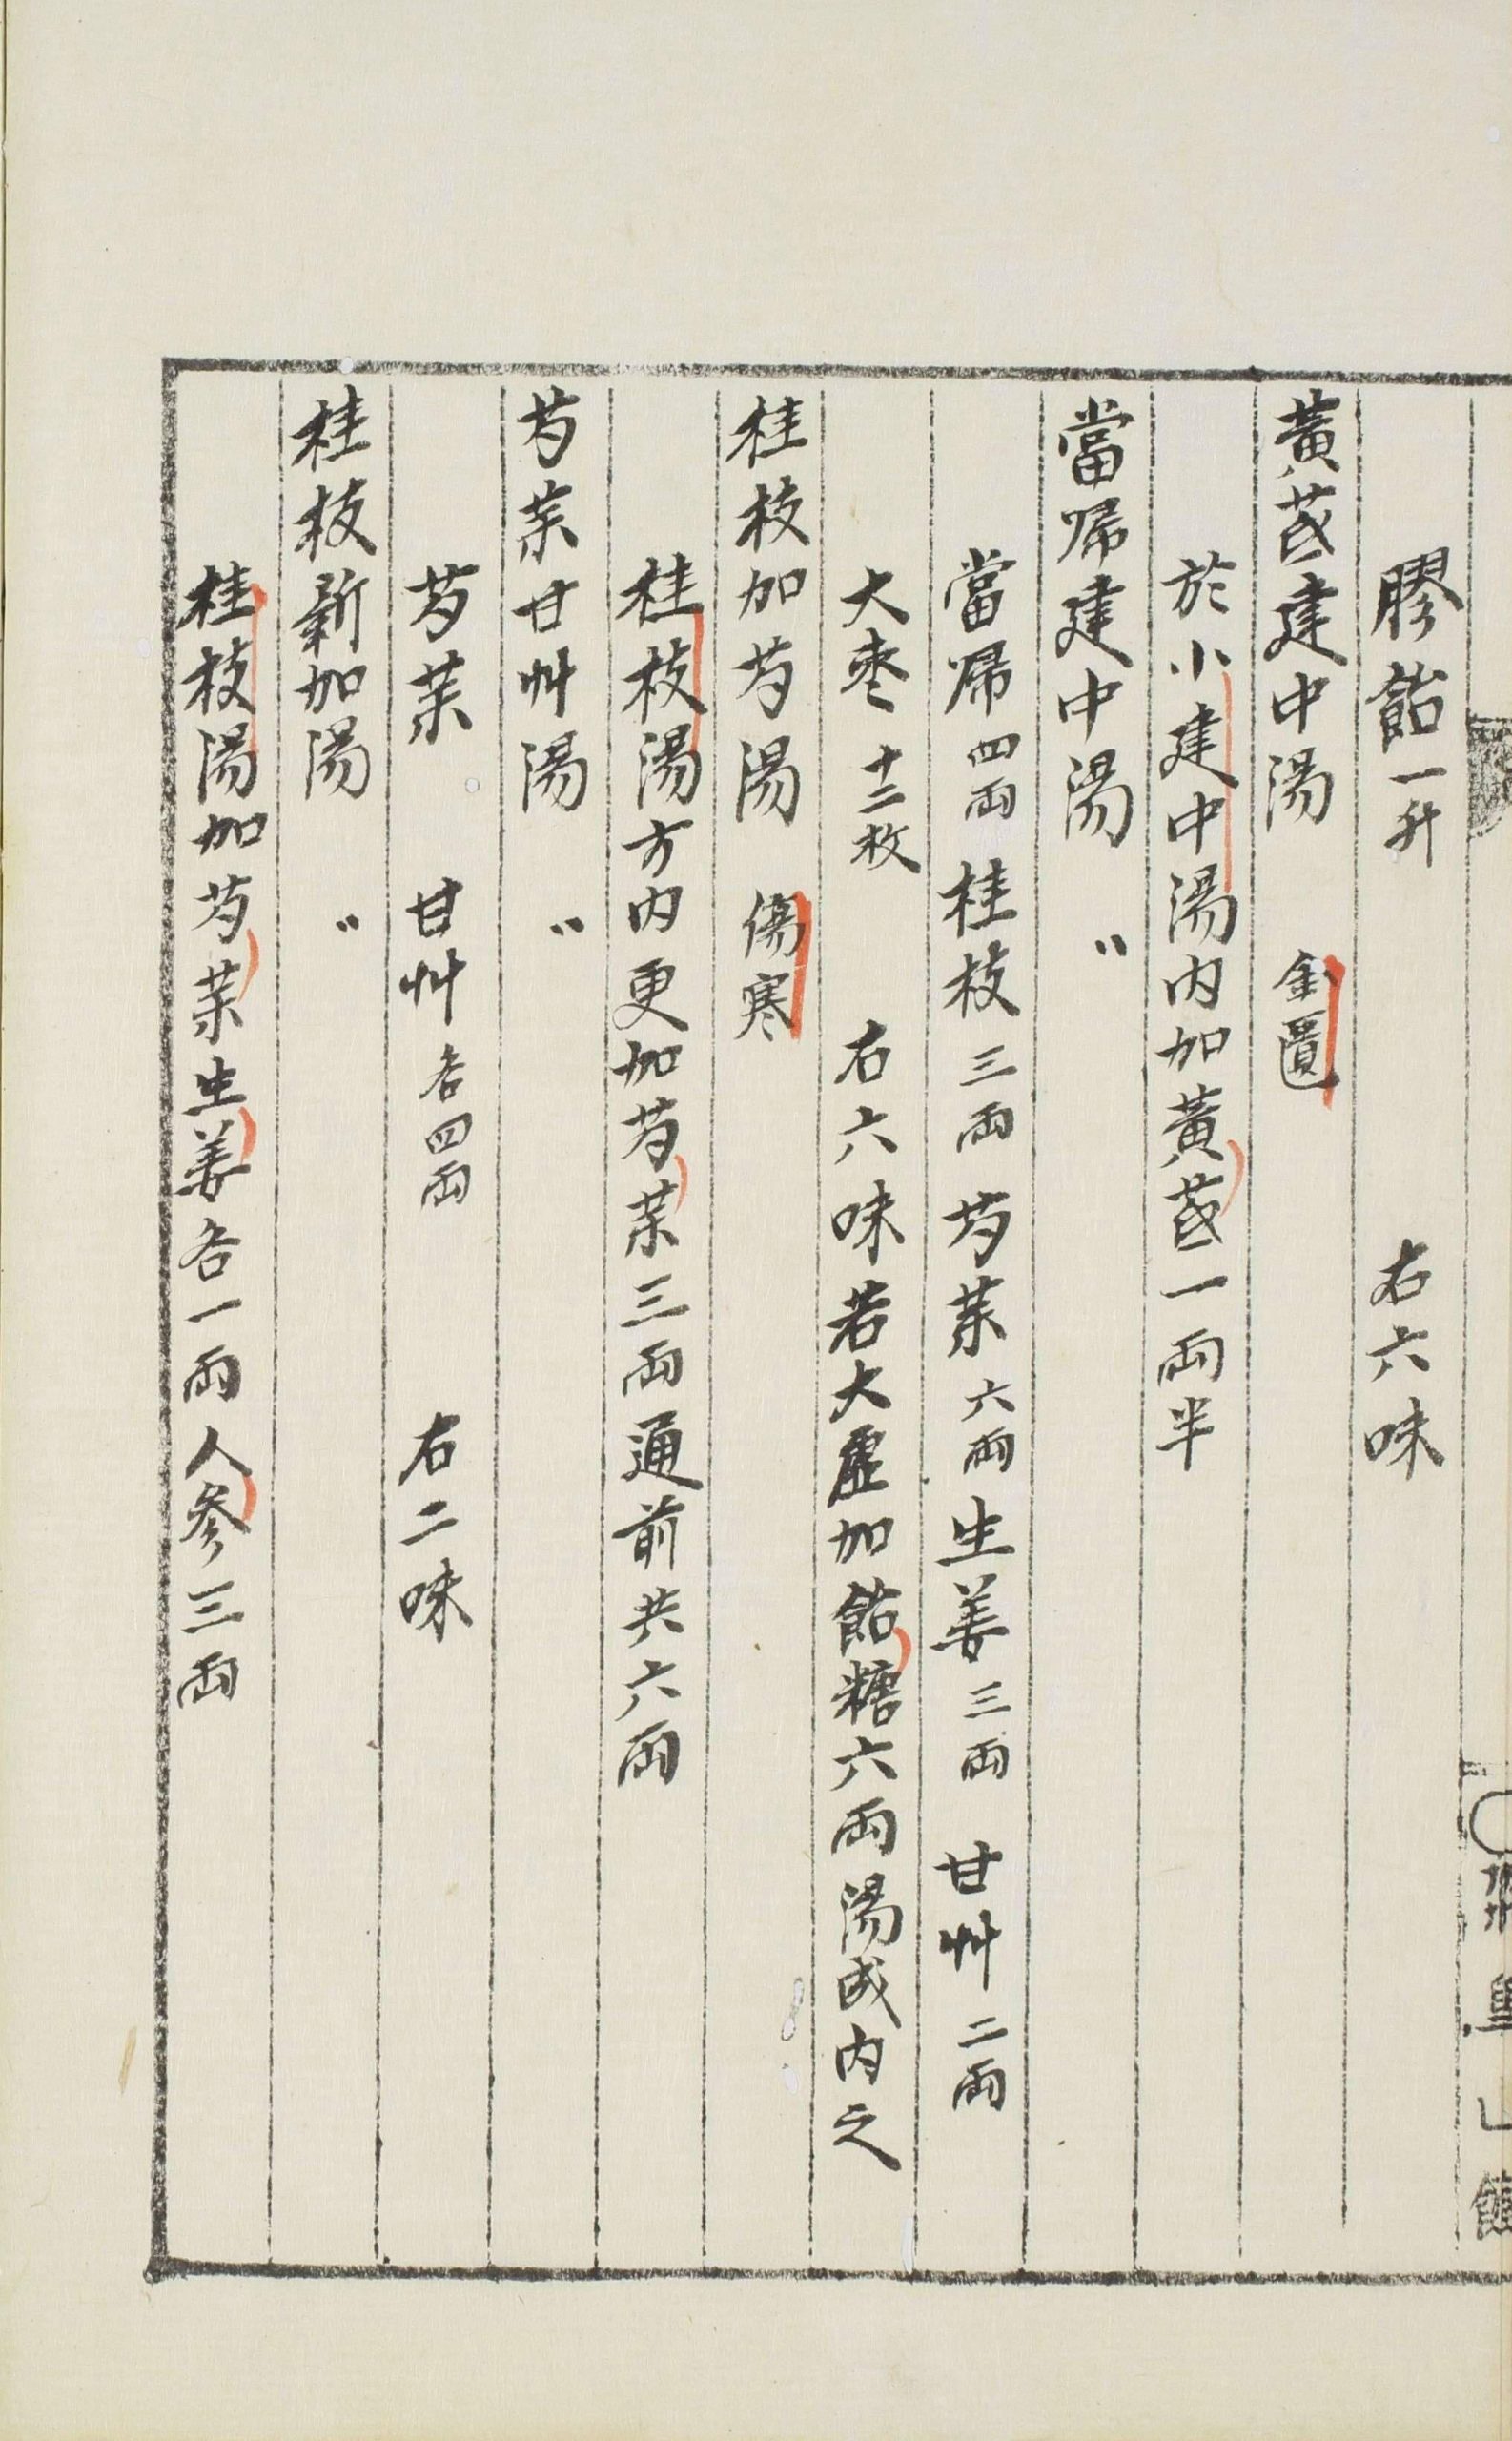 膠飴一升　右六味
黃芪建中湯　金匱
於小建中湯内加黃芪一兩半
當帰建中湯　〃
當帰四兩　桂枝三兩　芍薬六兩　生姜三兩　甘艸二兩
大棗十二枚　右六味若大虛加飴糖六兩湯成内之
桂枝加芍湯　傷寒
桂枝湯方内更加芍薬三兩通前共六兩
芍薬甘艸湯　〃
芍薬　甘艸各四兩　右二味
桂枝新加湯　〃
桂枝湯加芍薬生姜各一兩人参三兩
山館